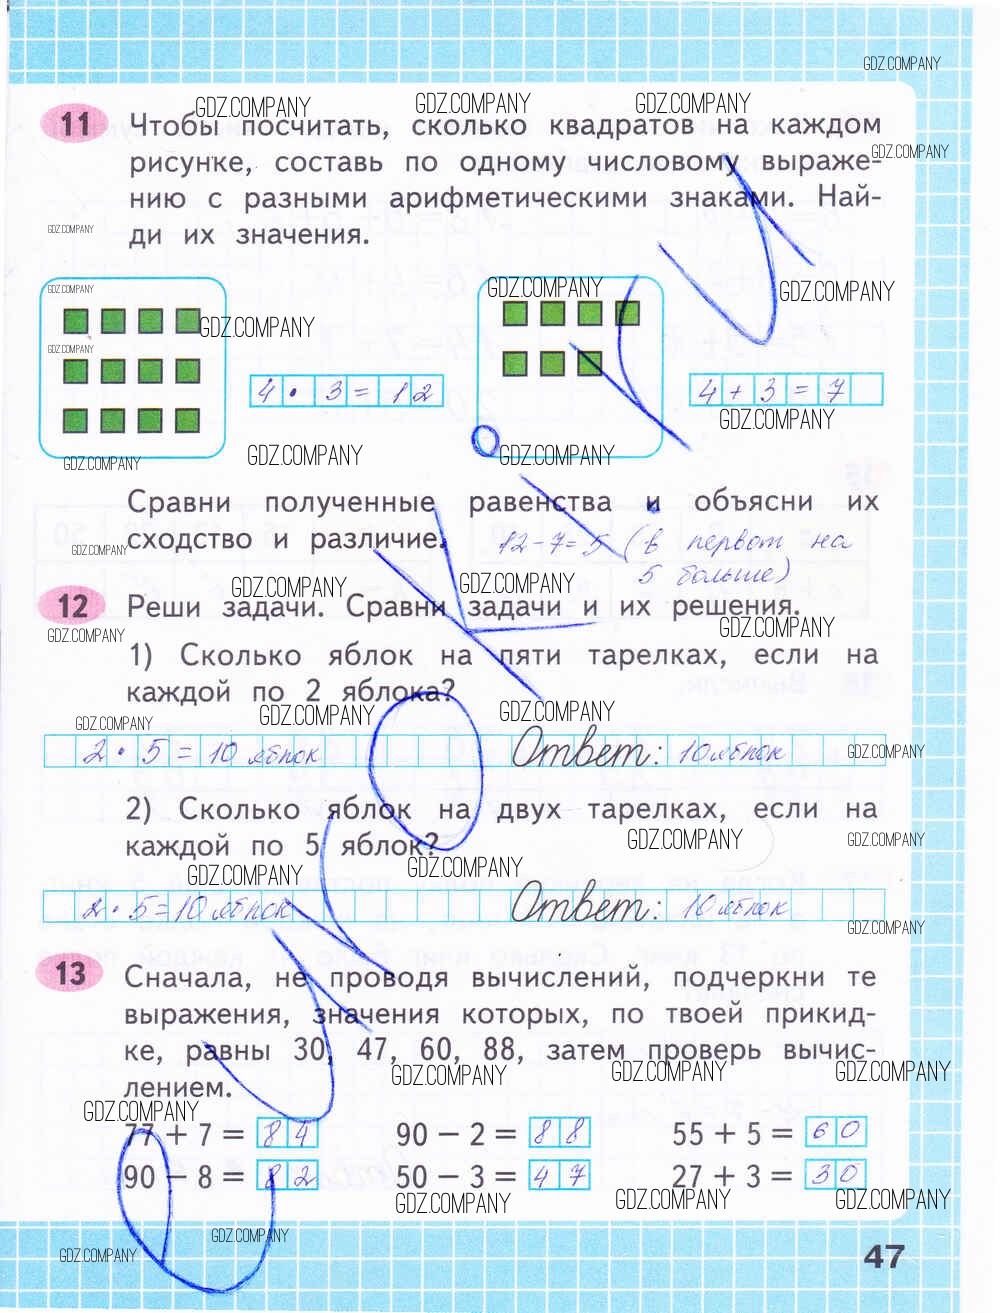 GDZ.COMPANY
GDZ.COMPANY GDZ.COMPANY GDZ.COMPANY
11 Чтобы посчитать, сколько квадратов на каждом
GDZ.COMPANY
рисунке, составь по одному числовому выраже-
нию с разными арифметическими знаками. Най-
GDZ.COMPANY
ди их значения.
GDZ.COMPANY GDZ.COMPANY GDZ.COMPANY
GDZ.COMPANY
GDZ.COMPANY
4 · 3 = 12
4 + 3 = 7
GDZ.COMPANY
GDZ.COMPANY GDZ.COMPANY GDZ.COMPANY
Сравни полученные равенства и объясни их
сходство и различие. 12-7=5 (в первом на
GDZ.COMPANY
5 больше)
GDZ.COMPANY GDZ.COMPANY
12 Реши задачи. Сравни задачи и их решения.
GDZ.COMPANY GDZ.COMPANY
1) Сколько яблок на пяти тарелках, если на
каждой по 2 яблока?
GDZ.COMPANY GDZ.COMPANY GDZ.COMPANY
2 · 5 = 10 яблок Ответ: 10 яблок
GDZ.COMPANY
2) Сколько яблок на двух тарелках, если на
GDZ.COMPANY GDZ.COMPANY
каждой по 5 яблок?
GDZ.COMPANY GDZ.COMPANY
2 · 5 = 10 яблок Ответ: 10 яблок
GDZ.COMPANY
13 Сначала, не проводя вычислений, подчеркни те
выражения, значения которых, по твоей прикид-
ке, равны 30, 47, 60, 88, затем проверь вычис-
GDZ.COMPANY GDZ.COMPANY GDZ.COMPANY
лением.
GDZ.COMPANY
77 + 7 = 84 90 − 2 = 88 55 + 5 = 60
90 − 8 = 82 50 − 3 = 47 27 + 3 = 30
GDZ.COMPANY GDZ.COMPANY GDZ.COMPANY
GDZ.COMPANY GDZ.COMPANY
47